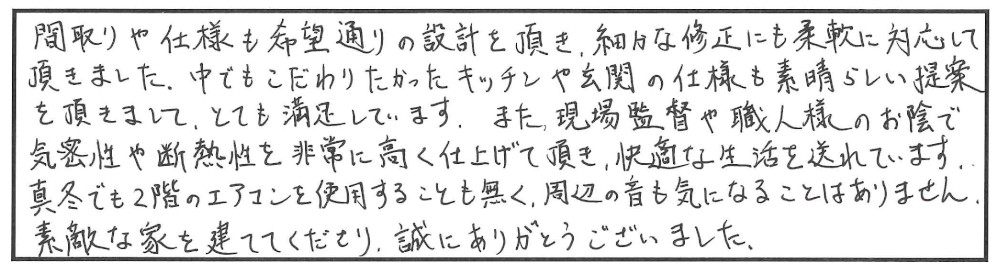 間取りや仕様も希望通りの設計を頂き、細かな修正にも柔軟に対応して
頂きました。中でもこだわりたかったキッチンや玄関の仕様も素晴らしい提案
を頂きまして、とても満足しています。また、現場監督や職人様のお陰で
気密性や断熱性を非常に高く仕上げて頂き、快適な生活を送れています。
真冬でも2階のエアコンを使用することも無く、周辺の音も気になることはありません。
素敵な家を建ててくださり、誠にありがとうございました。